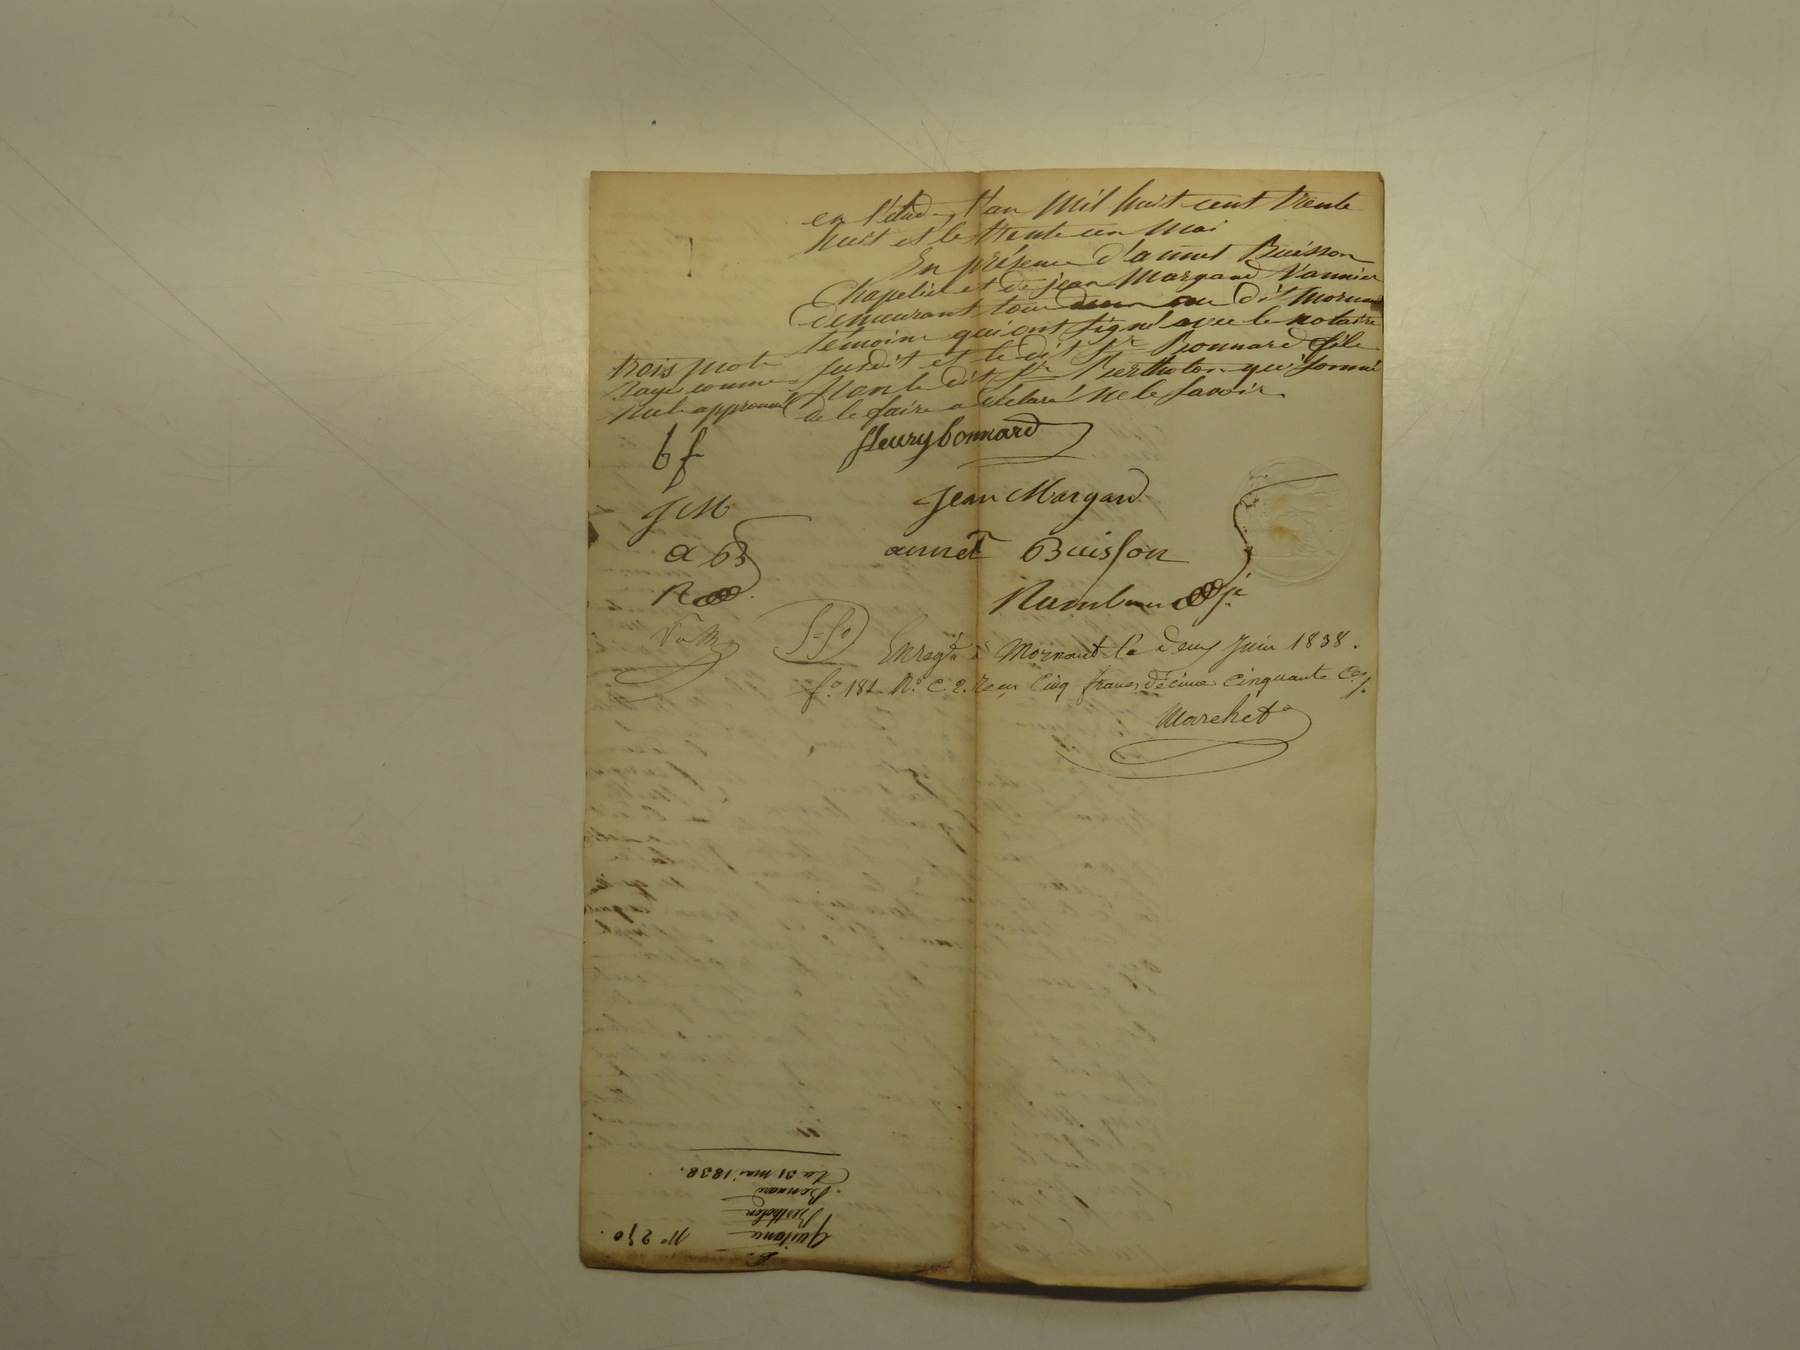 en l'étude, l'an Mil huit cent trente
huit et le trente un Mai
En présence d'annet Buisson
Chapelier et de jean Margand Vannier
demeurant tous deux au dit Mornant
témoins qui ont signé avec le notaire
susdit et le dit Sr Bonnard fils
Non le dit Sr Bertholon qui sommé
de le faire a déclaré ne le savoir.
trois mots
rayés comme
nuls approuvés
bf
fleury bonnard
JM
Jean Margand
a B
annet Buisson
R
Enregtré à Mornant le deux Juin 1838.
fo 181 Ro C 2. Reçu Cinq francs décime Cinquante Ces
Marchet
Quittance
Bertholon
Bonnard
Du 31 mai 1838.
No 250.